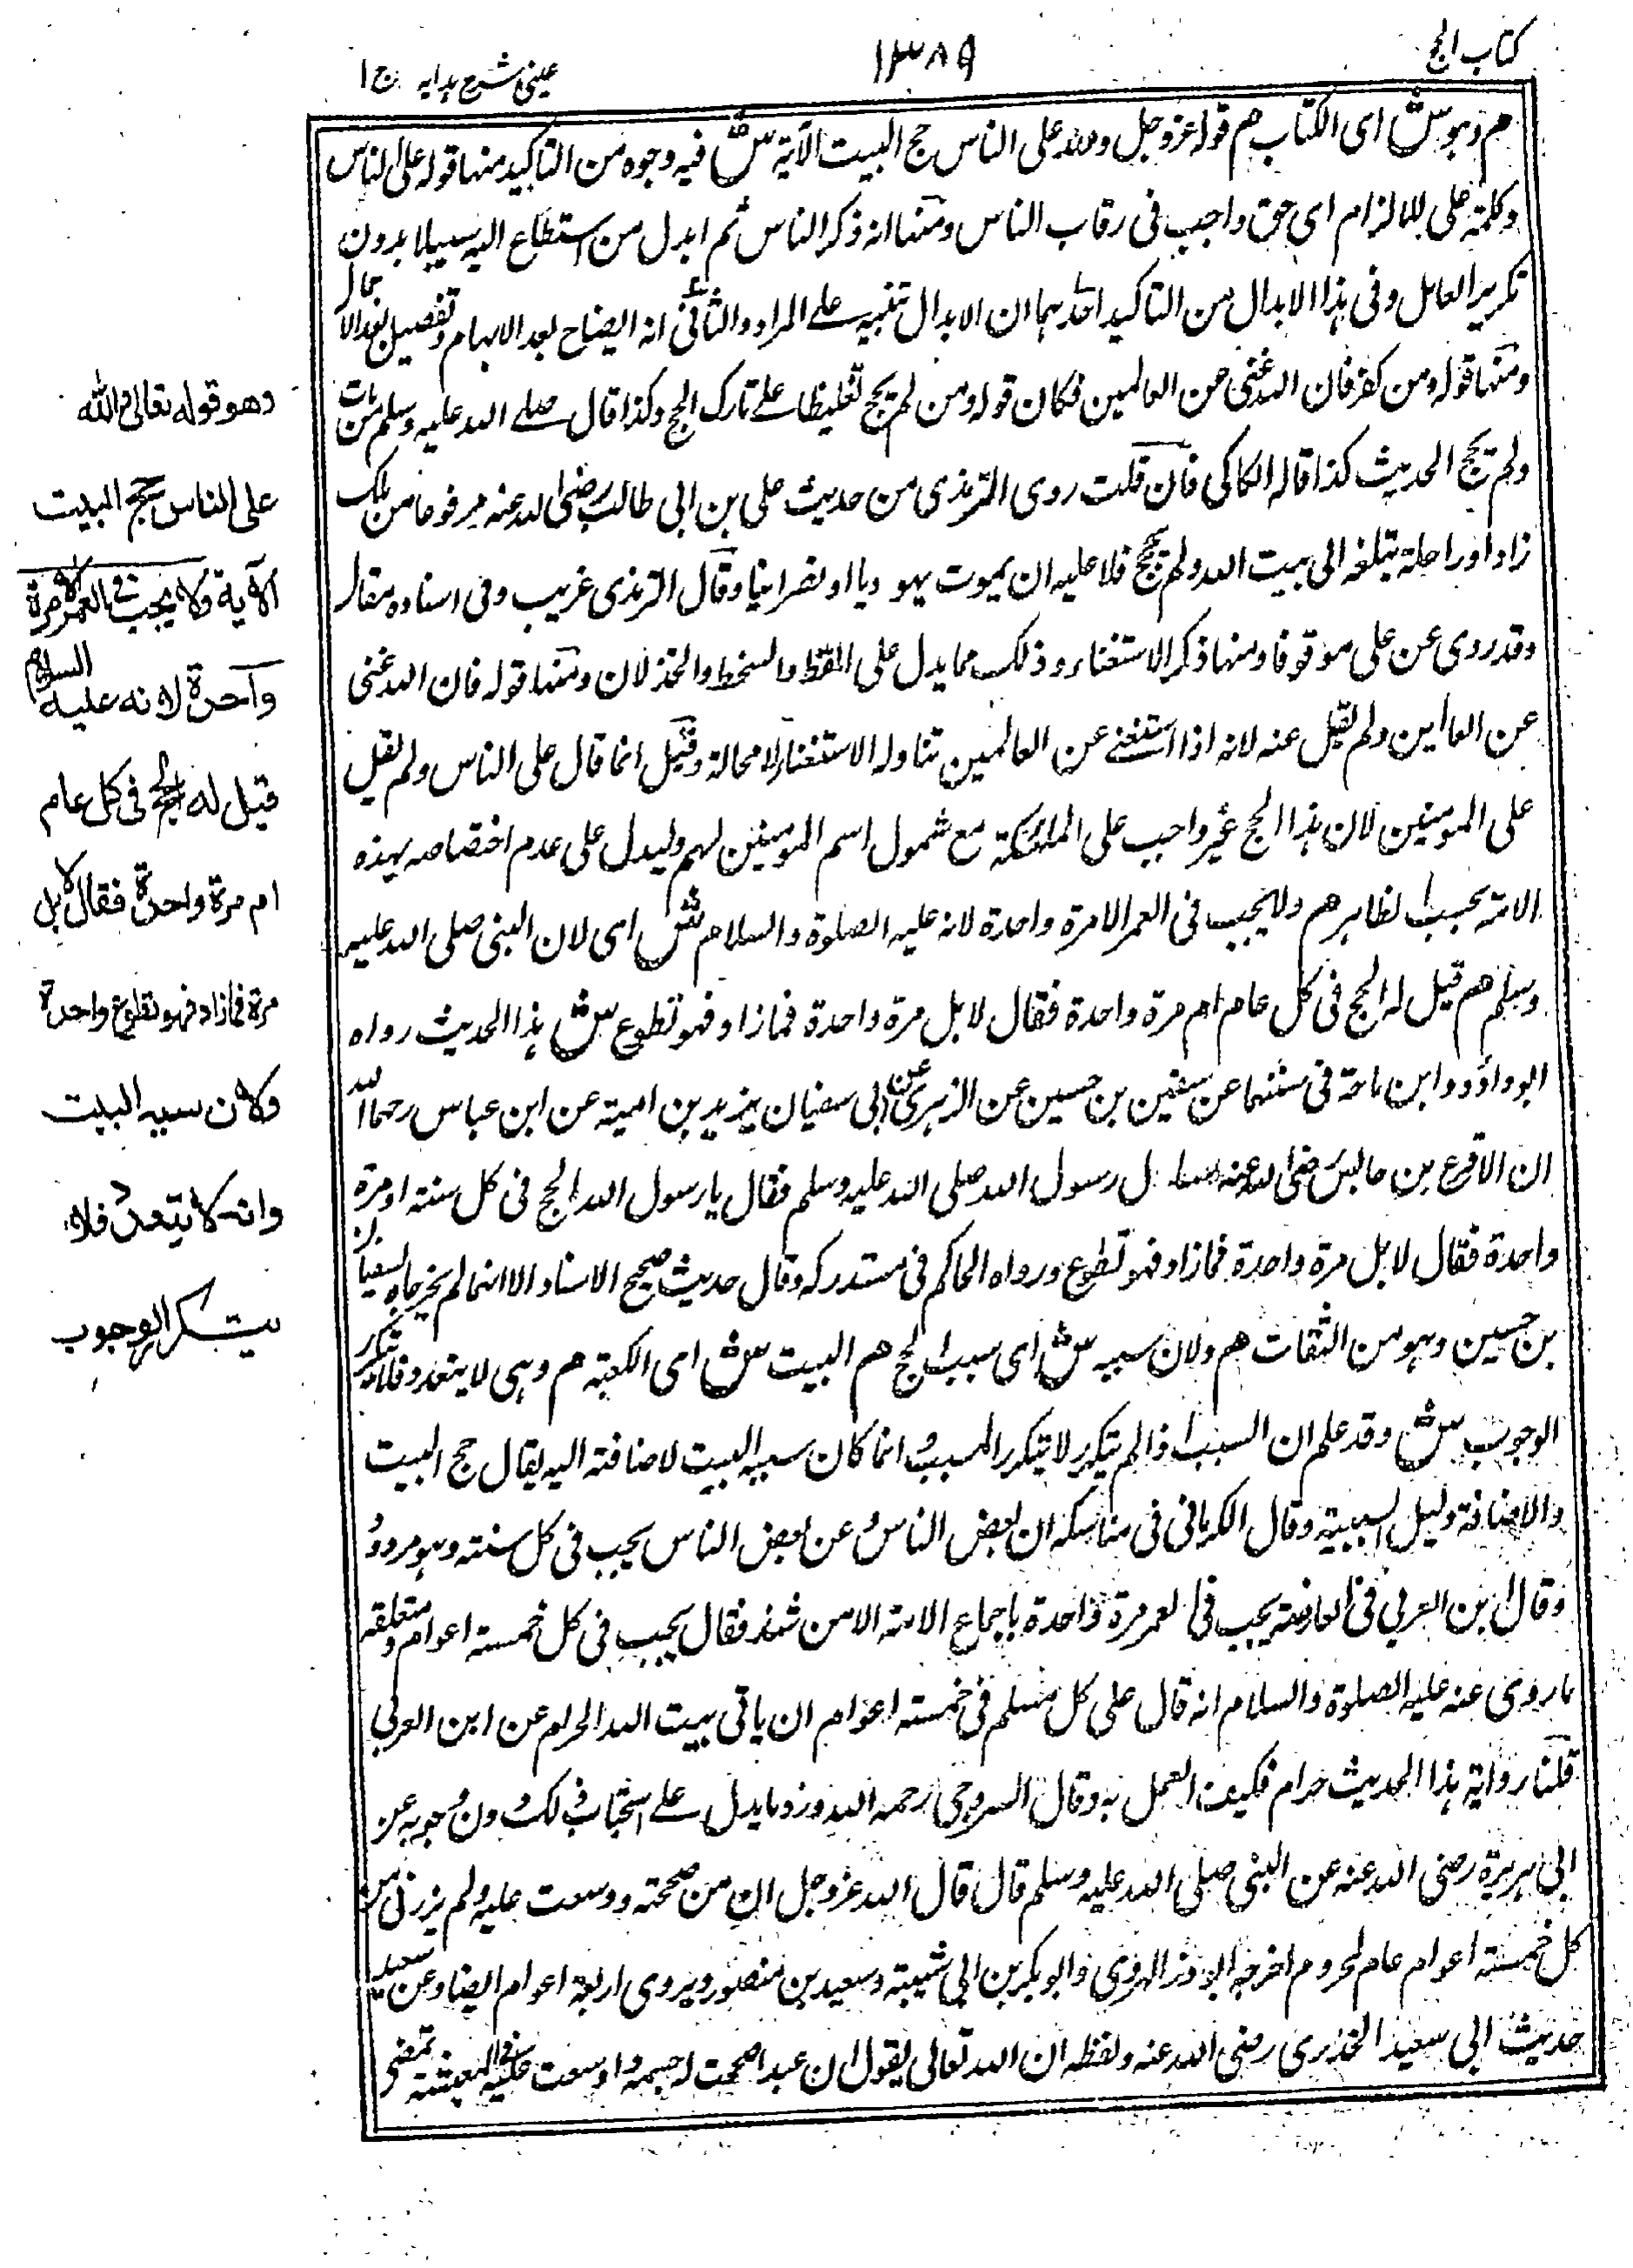 كتاب الحج
١٣٨٩
عینی شرح ہدایہ ج ١
م وہوش ای الکتاب ھم قولہ عزوجل وللہ علی الناس حج البیت الآیۃ ش فیہ وجوہ من التاکید منہا قولہ علی الناس
وکلمۃ علی للالزام ای حق واجب فی رقاب الناس ومنہا انہ ذکر الناس ثم ابدل من استطاع الیہ سبیلا بدون
تکریر العامل وفی ہذا الابدال من التاکید احدہما ان الابدال تنبیہ علے المراد والثانی انہ ایضاح بعد الابہام وتفصیل بعد الاجمال
ومنہا قولہ ومن کفر فان اللہ غنی عن العالمین فکان قولہ ومن لم یحج تغلیظا علے تارک الحج وکذا قال صلے اللہ علیہ وسلم من مات
ولم یحج الحدیث کذا قالہ الکاکی فان قلت روی الترمذی من حدیث علی بن ابی طالب رضی اللہ عنہ مرفوعا من ملک
زادا وراحلۃ تبلغہ الی بیت اللہ ولم یحج فلا علیہ ان یموت یہودیا او نصرانیا وقال الترمذی غریب وفی اسنادہ مقال
وقد روی عن علی موقوفا ومنہا ذکر الاستغناء وذلک مما یدل علی المقط والسخط والخذلان ومنہا قولہ فان اللہ غنی
عن العالمین ولم یقل عنہ لانہ اذا استغنے عن العالمین تناولہ الاستغناء لا محالۃ وقیل انما قال علی الناس ولم یقل
علی المومنین لان ہذا الحج غیر واجب علی الملئکۃ مع شمول اسم المومنین لہم ولیدل علی عدم اختصاصہ بہذہ
الامۃ بحسب الظاہر ھم ولا یجب فی العمر الا مرۃ واحدۃ لانہ علیہ الصلوۃ والسلام ش ای لان النبی صلی اللہ علیہ
وسلم ھم قیل لہ الحج فی کل عام ام مرۃ واحدۃ فقال لا بل مرۃ واحدۃ فما زاد فہو تطوع ش ہذا الحدیث رواہ
ابو داؤد وابن ماجۃ فی سننہما عن سفین بن حسین عن الزہری عن ابی سفیان یزید بن امیۃ عن ابن عباس رحمہ اللہ
ان الاقرع بن حابس رضی اللہ عنہ سال رسول اللہ صلی اللہ علیہ وسلم فقال یا رسول اللہ الحج فی کل سنۃ او مرۃ
واحدۃ فقال لا بل مرۃ واحدۃ فما زاد فہو تطوع ورواہ الحاکم فی مستدرکہ وقال حدیث صحیح الاسناد الا انہما لم یخرجاہ لسفیان
بن حسین وہو من الثقات ھم ولان سببہ ش ای سبب الحج ھم البیت ش ای الکعبۃ ھم وہی لا یتعدد فلا یتکرر
الوجوب ش وقد علم ان السبب اذا لم یتکرر لا یتکرر المسبب وانما کان سببہ البیت لاضافتہ الیہ یقال حج البیت
والاضافۃ دلیل السببیۃ وقال الکرمانی فی مناسکہ ان بعض الناس وعن بعض الناس یجب فی کل سنۃ وہو مردود
وقال ابن العربی فی العارضۃ یجب فی العمر مرۃ واحدۃ باجماع الامۃ الا من شذ فقال یجب فی کل خمسۃ اعوام ومتعلقہ
ما روی عنہ علیہ الصلوۃ والسلام انہ قال علی کل مسلم فی خمسۃ اعوام ان یاتی بیت اللہ الحرام عن ابن العربی
قلنا روایۃ ہذا الحدیث حرام فکیف العمل بہ وقال السروجی رحمہ اللہ وزد ما یدل علے استحباب ذلک دون وجوبہ عن
ابی ہریرۃ رضی اللہ عنہ عن النبی صلی اللہ علیہ وسلم قال قال اللہ عزوجل ان من صححتہ ووسعت علیہ ولم یزرنی من
کل خمسۃ اعوام عام لمحروم اخرجہ ابو ذر الہروی وابو بکر بن ابی شیبۃ وسعید بن منصور ویروی اربعۃ اعوام ایضا وعن سعید
حدیث ابی سعید الخدری رضی اللہ عنہ ولفظہ ان اللہ تعالی یقول ان عبدا صححت لہ جسمہ واوسعت علیہ فی المعیشۃ تمضی
وهو قوله تعالى ولله
على الناس حج البيت
الآية ولا يجب في العمر الا مرة
واحدة لانه عليه السلام
قيل له الحج في كل عام
ام مرة واحدة فقال لا بل
مرة فما زاد فهو تطوع واحدة
ولان سببه البيت
وانه لا يتعدد فلا
يتكرر الوجوب